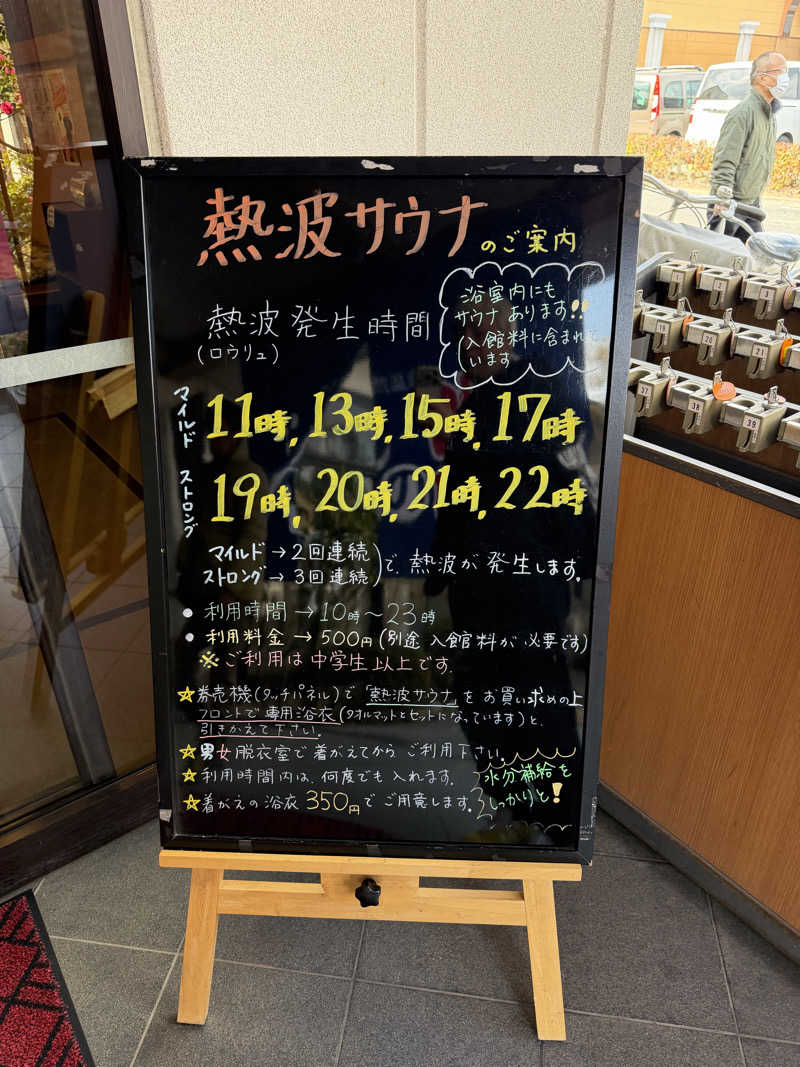 熱波サウナのご案内
浴室内にも
サウナあります!!
(入館料に含まれて
います
熱波発生時間
(ロウリュ)
マイルド 11時, 13時, 15時, 17時
ストロング 19時, 20時, 21時, 22時
マイルド→2回連続
ストロング→3回連続)で、熱波が発生します。
● 利用時間→10時〜23時
● 利用料金→500円(別途入館料が必要です)
※ご利用は中学生以上です。
☆券売機(タッチパネル)で「熱波サウナ」をお買い求めの上
フロントで専用浴衣(タオルマットとセットになっています)と、
引きかえて下さい。
☆男女脱衣室で着がえてからご利用下さい。
☆利用時間内は、何度でも入れます。
☆着がえの浴衣350円でご用意します。
水分補給を
しっかりと!
19
20
21
37
38
39